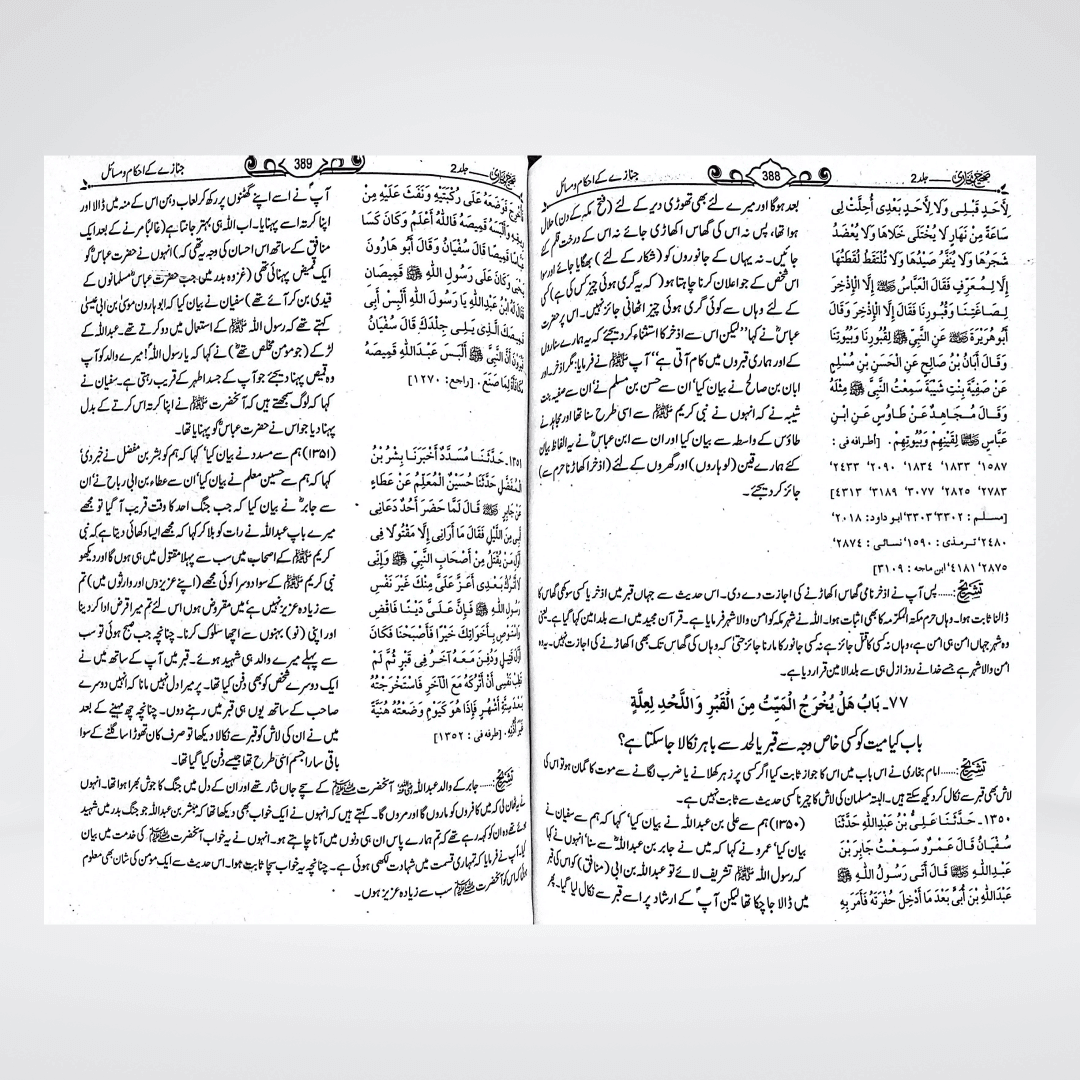 صحیح بخاری جلد2
388
جنازے کے احکام و مسائل
لِأَحَدٍ قَبْلِي وَلَا لِأَحَدٍ بَعْدِي أُحِلَّتْ لِي
سَاعَةً مِنْ نَهَارٍ لَا يُخْتَلَى خَلَاهَا وَلَا يُعْضَدُ
شَجَرُهَا وَلَا يُنَفَّرُ صَيْدُهَا وَلَا تُلْتَقَطُ لُقَطَتُهَا
إِلَّا لِمُعَرِّفٍ فَقَالَ الْعَبَّاسُ إِلَّا الْإِذْخِرَ
لِصَاغَتِنَا وَقُبُورِنَا فَقَالَ إِلَّا الْإِذْخِرَ وَقَالَ
أَبُو هُرَيْرَةَ عَنِ النَّبِيِّ ﷺ لِقُبُورِنَا وَبُيُوتِنَا
وَقَالَ أَبَانُ بْنُ صَالِحٍ عَنِ الْحَسَنِ بْنِ مُسْلِمٍ
عَنْ صَفِيَّةَ بِنْتِ شَيْبَةَ سَمِعْتُ النَّبِيَّ ﷺ مِثْلَهُ
وَقَالَ مُجَاهِدٌ عَنْ طَاوُسٍ عَنِ ابْنِ
عَبَّاسٍ لِقَيْنِهِمْ وَبُيُوتِهِمْ. [أطرافه في :
۱۵۸۷، ۱۸۳۳، ۱۸۳۴، ۲۰۹۰، ۲۴۳۳،
۲۷۸۳، ۲۸۲۵، ۳۰۷۷، ۳۱۸۹، ۴۳۱۳]
[مسلم : ۳۳۰۲، ۳۳۰۳؛ ابو داود: ۲۰۱۸،
۲۴۸۰؛ ترمذی: ۱۵۹۰؛ نسائی : ۲۸۷۴،
۲۸۷۵، ۴۱۸۱؛ ابن ماجه : ۳۱۰۹]
بعد ہوگا اور میرے لئے بھی تھوڑی دیر کے لئے (فتح مکہ کے دن) حلال
ہوا تھا، پس نہ اس کی گھاس اکھاڑی جائے نہ اس کے درخت قلم کئے
جائیں۔ نہ یہاں کے جانوروں کو (شکار کے لئے) بھگایا جائے اور سوا
اس شخص کے جو اعلان کرنا چاہتا ہو (کہ یہ گری ہوئی چیز کس کی ہے) کسی
کے لئے وہاں سے کوئی گری ہوئی چیز اٹھانی جائز نہیں۔ اس پر حضرت
عباسؓ نے کہا "لیکن اس سے اذخر کا استثناء کر دیجئے کہ یہ ہمارے سناروں
کے اور ہماری قبروں میں کام آتی ہے" آپ ﷺ نے فرمایا: مگر اذخر، اور
ابان بن صالح نے بیان کیا، ان سے حسن بن مسلم نے، ان سے صفیہ بنت
شیبہ نے کہ انہوں نے نبی کریم ﷺ سے اسی طرح سنا تھا اور مجاہد نے
طاؤس کے واسطہ سے بیان کیا اور ان سے ابن عباسؓ نے یہ الفاظ بیان
کئے ہمارے قین (لوہاروں) اور گھروں کے لئے (اذخر اکھاڑنا حرم سے)
جائز کر دیجئے۔
تشریح:...... پس آپ نے اذخر نامی گھاس اکھاڑنے کی اجازت دے دی۔ اس حدیث سے جہاں قبر میں اذخر یا کسی سوکھی گھاس کا
ڈالنا ثابت ہوا۔ وہاں حرم مکۃ المکرمہ کا بھی اثبات ہوا۔ اللہ نے شہر مکہ کو امن والا شہر فرمایا ہے۔ قرآن مجید میں اسے بلد امین کہا گیا ہے۔ یعنی
وہ شہر جہاں امن ہی امن ہے، وہاں نہ کسی کا قتل جائز ہے نہ کسی جانور کا مارنا جائز حتیٰ کہ وہاں کی گھاس تک بھی اکھاڑنے کی اجازت نہیں۔ یہ وہ
امن والا شہر ہے جسے خدا نے روز ازل ہی سے بلد الامین قرار دیا ہے۔
۷۷۔ بَابُ هَلْ يُخْرَجُ الْمَيِّتُ مِنَ الْقَبْرِ وَاللَّحْدِ لِعِلَّةٍ
باب کیا میت کو کسی خاص وجہ سے قبر یا لحد سے باہر نکالا جا سکتا ہے؟
تشریح:...... امام بخاری نے اس باب میں اس کا جواز ثابت کیا اگر کسی پر زہر کھلانے یا ضرب لگانے سے موت کا گمان ہو تو اس کی
لاش بھی قبر سے نکال کر دیکھ سکتے ہیں۔ البتہ مسلمان کی لاش کا چیرنا کسی حدیث سے ثابت نہیں ہے۔
۱۳۵۰۔ حَدَّثَنَا عَلِيُّ بْنُ عَبْدِاللَّهِ حَدَّثَنَا
سُفْيَانُ قَالَ عَمْرٌو سَمِعْتُ جَابِرَ بْنَ
عَبْدِاللَّهِ قَالَ أَتَى رَسُولُ اللَّهِ ﷺ
عَبْدَاللَّهِ بْنَ أُبَيٍّ بَعْدَ مَا أُدْخِلَ حُفْرَتَهُ فَأَمَرَ بِهِ
(۱۳۵۰) ہم سے علی بن عبداللہ نے بیان کیا، کہا کہ ہم سے سفیان نے
بیان کیا، عمرو نے کہا کہ میں نے جابر بن عبداللہؓ سے سنا، انہوں نے کہا
کہ رسول اللہ ﷺ تشریف لائے تو عبداللہ بن ابی (منافق) کو اس کی قبر
میں ڈالا جا چکا تھا لیکن آپؐ کے ارشاد پر اسے قبر سے نکال لیا گیا۔ پھر
صحیح بخاری جلد2
389
جنازے کے احکام و مسائل
فَأُخْرِجَ فَوَضَعَهُ عَلَى رُكْبَتَيْهِ وَنَفَثَ عَلَيْهِ مِنْ
رِيقِهِ وَأَلْبَسَهُ قَمِيصَهُ فَاللَّهُ أَعْلَمُ وَكَانَ كَسَا
عَبَّاسًا قَمِيصًا قَالَ سُفْيَانُ وَقَالَ أَبُو هَارُونَ
يَحْيَى وَكَانَ عَلَى رَسُولِ اللَّهِ ﷺ قَمِيصَانِ
فَقَالَ لَهُ ابْنُ عَبْدِاللَّهِ يَا رَسُولَ اللَّهِ أَلْبِسْ أَبِي
قَمِيصَكَ الَّذِي يَلِي جِلْدَكَ قَالَ سُفْيَانُ
فَيُرَوْنَ أَنَّ النَّبِيَّ ﷺ أَلْبَسَ عَبْدَاللَّهِ قَمِيصَهُ
مُكَافَأَةً لِمَا صَنَعَ. [راجع: ۱۲۷۰]
آپؐ نے اسے اپنے گھٹنوں پر رکھ کر لعاب دہن اس کے منہ میں ڈالا اور
اپنا کرتہ اسے پہنایا۔ اب اللہ ہی بہتر جانتا ہے (غالباً مرنے کے بعد ایک
منافق کے ساتھ اس احسان کی وجہ یہ تھی کہ) انہوں نے حضرت عباسؓ کو
ایک قمیض پہنائی تھی (غزوہ بدر میں جب حضرت عباسؓ مسلمانوں کے
قیدی بن کر آئے تھے) سفیان نے بیان کیا کہ ابو ہارون موسیٰ بن ابی عیسیٰ
کہتے تھے کہ رسول اللہ ﷺ کے استعمال میں دو کرتے تھے۔ عبداللہ کے
لڑکے (جو مومن مخلص تھےؓ) نے کہا کہ یا رسول اللہ! میرے والد کو آپ
وہ قمیص پہنا دیجئے جو آپ کے جسد اطہر کے قریب رہتی ہے۔ سفیان نے
کہا کہ لوگ سمجھتے ہیں کہ آنحضرت ﷺ نے اپنا کرتہ اس کرتے کے بدل
پہنا دیا جو اس نے حضرت عباسؓ کو پہنایا تھا۔
۱۳۵۱۔ حَدَّثَنَا مُسَدَّدٌ أَخْبَرَنَا بِشْرُ بْنُ
الْمُفَضَّلِ حَدَّثَنَا حُسَيْنٌ الْمُعَلِّمُ عَنْ عَطَاءٍ
عَنْ جَابِرٍ قَالَ لَمَّا حَضَرَ أُحُدٌ دَعَانِي
أَبِي مِنَ اللَّيْلِ فَقَالَ مَا أُرَانِي إِلَّا مَقْتُولًا فِي
أَوَّلِ مَنْ يُقْتَلُ مِنْ أَصْحَابِ النَّبِيِّ ﷺ وَإِنِّي
لَا أَتْرُكُ بَعْدِي أَعَزَّ عَلَيَّ مِنْكَ غَيْرَ نَفْسِ
رَسُولِ اللَّهِ ﷺ فَإِنَّ عَلَيَّ دَيْنًا فَاقْضِ
وَاسْتَوْصِ بِأَخَوَاتِكَ خَيْرًا فَأَصْبَحْنَا فَكَانَ
أَوَّلَ قَتِيلٍ وَدُفِنَ مَعَهُ آخَرُ فِي قَبْرٍ ثُمَّ لَمْ
تَطِبْ نَفْسِي أَنْ أَتْرُكَهُ مَعَ الْآخَرِ فَاسْتَخْرَجْتُهُ
بَعْدَ سِتَّةِ أَشْهُرٍ فَإِذَا هُوَ كَيَوْمِ وَضَعْتُهُ هُنَيَّةً
غَيْرَ أُذُنِهِ. [طرفه في : ۱۳۵۲]
(۱۳۵۱) ہم سے مسدد نے بیان کیا، کہا کہ ہم کو بشر بن مفضل نے خبر دی،
کہا کہ ہم سے حسین معلم نے بیان کیا، ان سے عطاء بن ابی رباح نے، ان
سے جابرؓ نے بیان کیا کہ جب جنگ احد کا وقت قریب آ گیا تو مجھے
میرے باپ عبداللہ نے رات کو بلا کر کہا کہ مجھے ایسا دکھائی دیتا ہے کہ نبی
کریم ﷺ کے اصحاب میں سب سے پہلا مقتول میں ہی ہوں گا اور دیکھو
نبی کریم ﷺ کے سوا دوسرا کوئی مجھے (اپنے عزیزوں اور وارثوں میں) تم
سے زیادہ عزیز نہیں ہے، میں مقروض ہوں اس لئے تم میرا قرض ادا کر دینا
اور اپنی (نو) بہنوں سے اچھا سلوک کرنا۔ چنانچہ جب صبح ہوئی تو سب
سے پہلے میرے والد ہی شہید ہوئے۔ قبر میں آپ کے ساتھ میں نے
ایک دوسرے شخص کو بھی دفن کیا تھا۔ پر میرا دل نہیں مانا کہ انہیں دوسرے
صاحب کے ساتھ یوں ہی قبر میں رہنے دوں۔ چنانچہ چھ مہینے کے بعد
میں نے ان کی لاش کو قبر سے نکالا دیکھا تو صرف کان تھوڑا سا گلنے کے سوا
باقی سارا جسم اسی طرح تھا جیسے دفن کیا گیا تھا۔
تشریح:...... جابر کے والد عبداللہ آنحضرت ﷺ کے سچے جاں نثار تھے اور ان کے دل میں جنگ کا جوش بھرا ہوا تھا۔ انہوں
نے یہ ٹھان لی کہ میں کافروں کو ماروں گا اور مروں گا۔ کہتے ہیں کہ انہوں نے ایک خواب بھی دیکھا تھا کہ مبشر بن عبداللہ جو جنگ بدر میں شہید
ہوئے تھے وہ ان کو کہہ رہے تھے کہ تم ہمارے پاس ان ہی دنوں میں آنا چاہتے ہو۔ انہوں نے یہ خواب آنحضرت ﷺ کی خدمت میں بیان
کیا، آپ نے فرمایا کہ تمہاری قسمت میں شہادت لکھی ہوئی ہے۔ چنانچہ یہ خواب سچا ثابت ہوا۔ اس حدیث سے ایک مؤمن کی شان بھی معلوم
ہوئی کہ اس کو آنحضرت ﷺ سب سے زیادہ عزیز ہوں۔